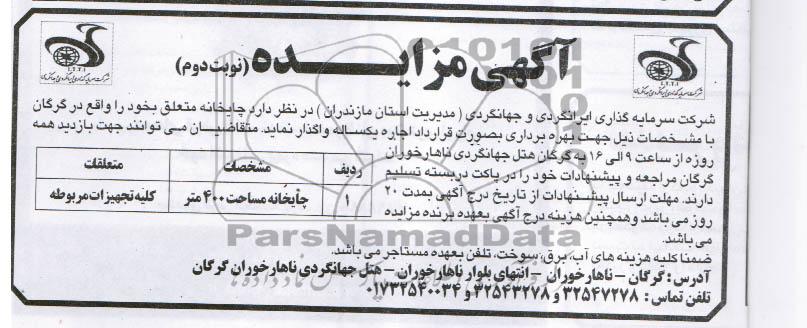 آگهی مزایــــده (نوبت دوم)
شرکت سرمایه گذاری ایرانگردی و جهانگردی ( مدیریت استان مازندران ) در نظر دارد چایخانه متعلق بخود را واقع در گرگان
با مشخصات ذیل جهت بهره برداری بصورت قرارداد اجاره یکساله واگذار نماید. متقاضیان می توانند جهت بازدید همه
روزه از ساعت ۹ الی ۱۶ به گرگان هتل جهانگردی ناهارخوران
گرگان مراجعه و پیشنهادات خود را در پاکت دربسته تسلیم
دارند. مهلت ارسال پیشنهادات از تاریخ درج آگهی بمدت ۲۰
روز می باشد وهمچنین هزینه درج آگهی بعهده برنده مزایده
می باشد.
ردیف مشخصات متعلقات
۱ چایخانه مساحت ۴۰۰ متر کلیه تجهیزات مربوطه
ضمنا کلیه هزینه های آب، برق، سوخت، تلفن بعهده مستاجر می باشد.
آدرس : گرگان – ناهارخوران – انتهای بلوار ناهارخوران – هتل جهانگردی ناهارخوران گرگان
تلفن تماس : ۳۲۵۴۷۲۷۸ و ۳۲۵۴۳۲۷۸ و ۰۱۷۳۲۵۴۰۰۳۴
ParsNamadData